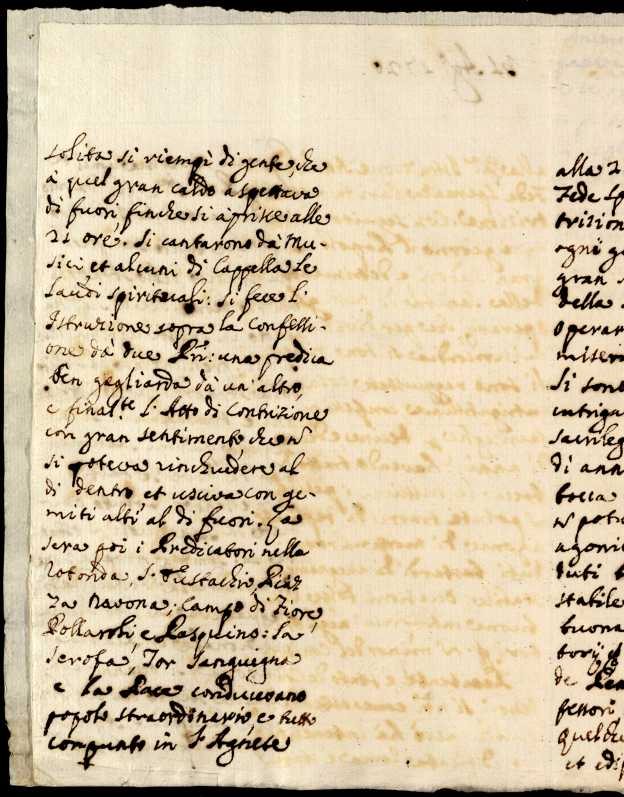 solita si riempì di gente, che
à quel gran caldo aspettava
di fuori, finche si aprisse alle
21 ore. Si cantarono dà Mu-
sici et alcuni di Cappella le
Laudi spirituali: si fece l'
Istruzione sopra la Confessi-
one dà due PP.ri: una predica
ben gagliarda dà un'altro,
e final.te l'Atto di Contrizione
con gran sentimento che ñ
si poteva rinchiudere al
di dentro et usciva con ge-
miti alti al di fuori. La
sera poi i Predicatori nella
Rotonda, S. Eustachio, Piaz
za Navona, Campo di Fiore
Pollaroli e Pasquino: la
Scrofa, Tor Sanguigna
e la Pace conducevano
popolo straordinario, e tutto
compunto in S. Agnese
alla 2
Fede Sp
trizion
ogni g
gran
della
operar
miseri
Si sono
intriga
sacrileg
di ann
bocca
ñ pot
agoni
tuti
stabile
buona
tori
de Pen
fessori
quelche
et edi